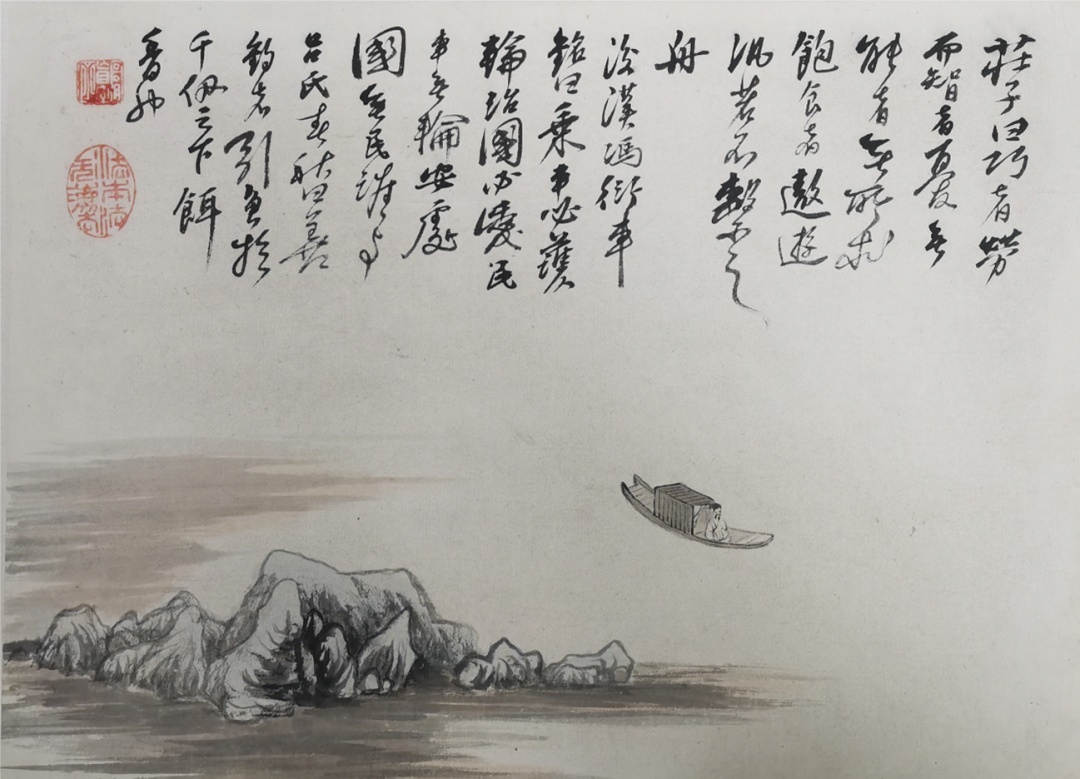 莊子曰巧者勞
而智者憂無
能者無所求
飽食而遨遊
汎若不繫之
舟
後漢馮衍車
銘曰乘車必護
輪治國必愛民
車無輪安處
國無民誰與
呂氏春秋曰善
釣者引魚於
千仞之下餌
香也